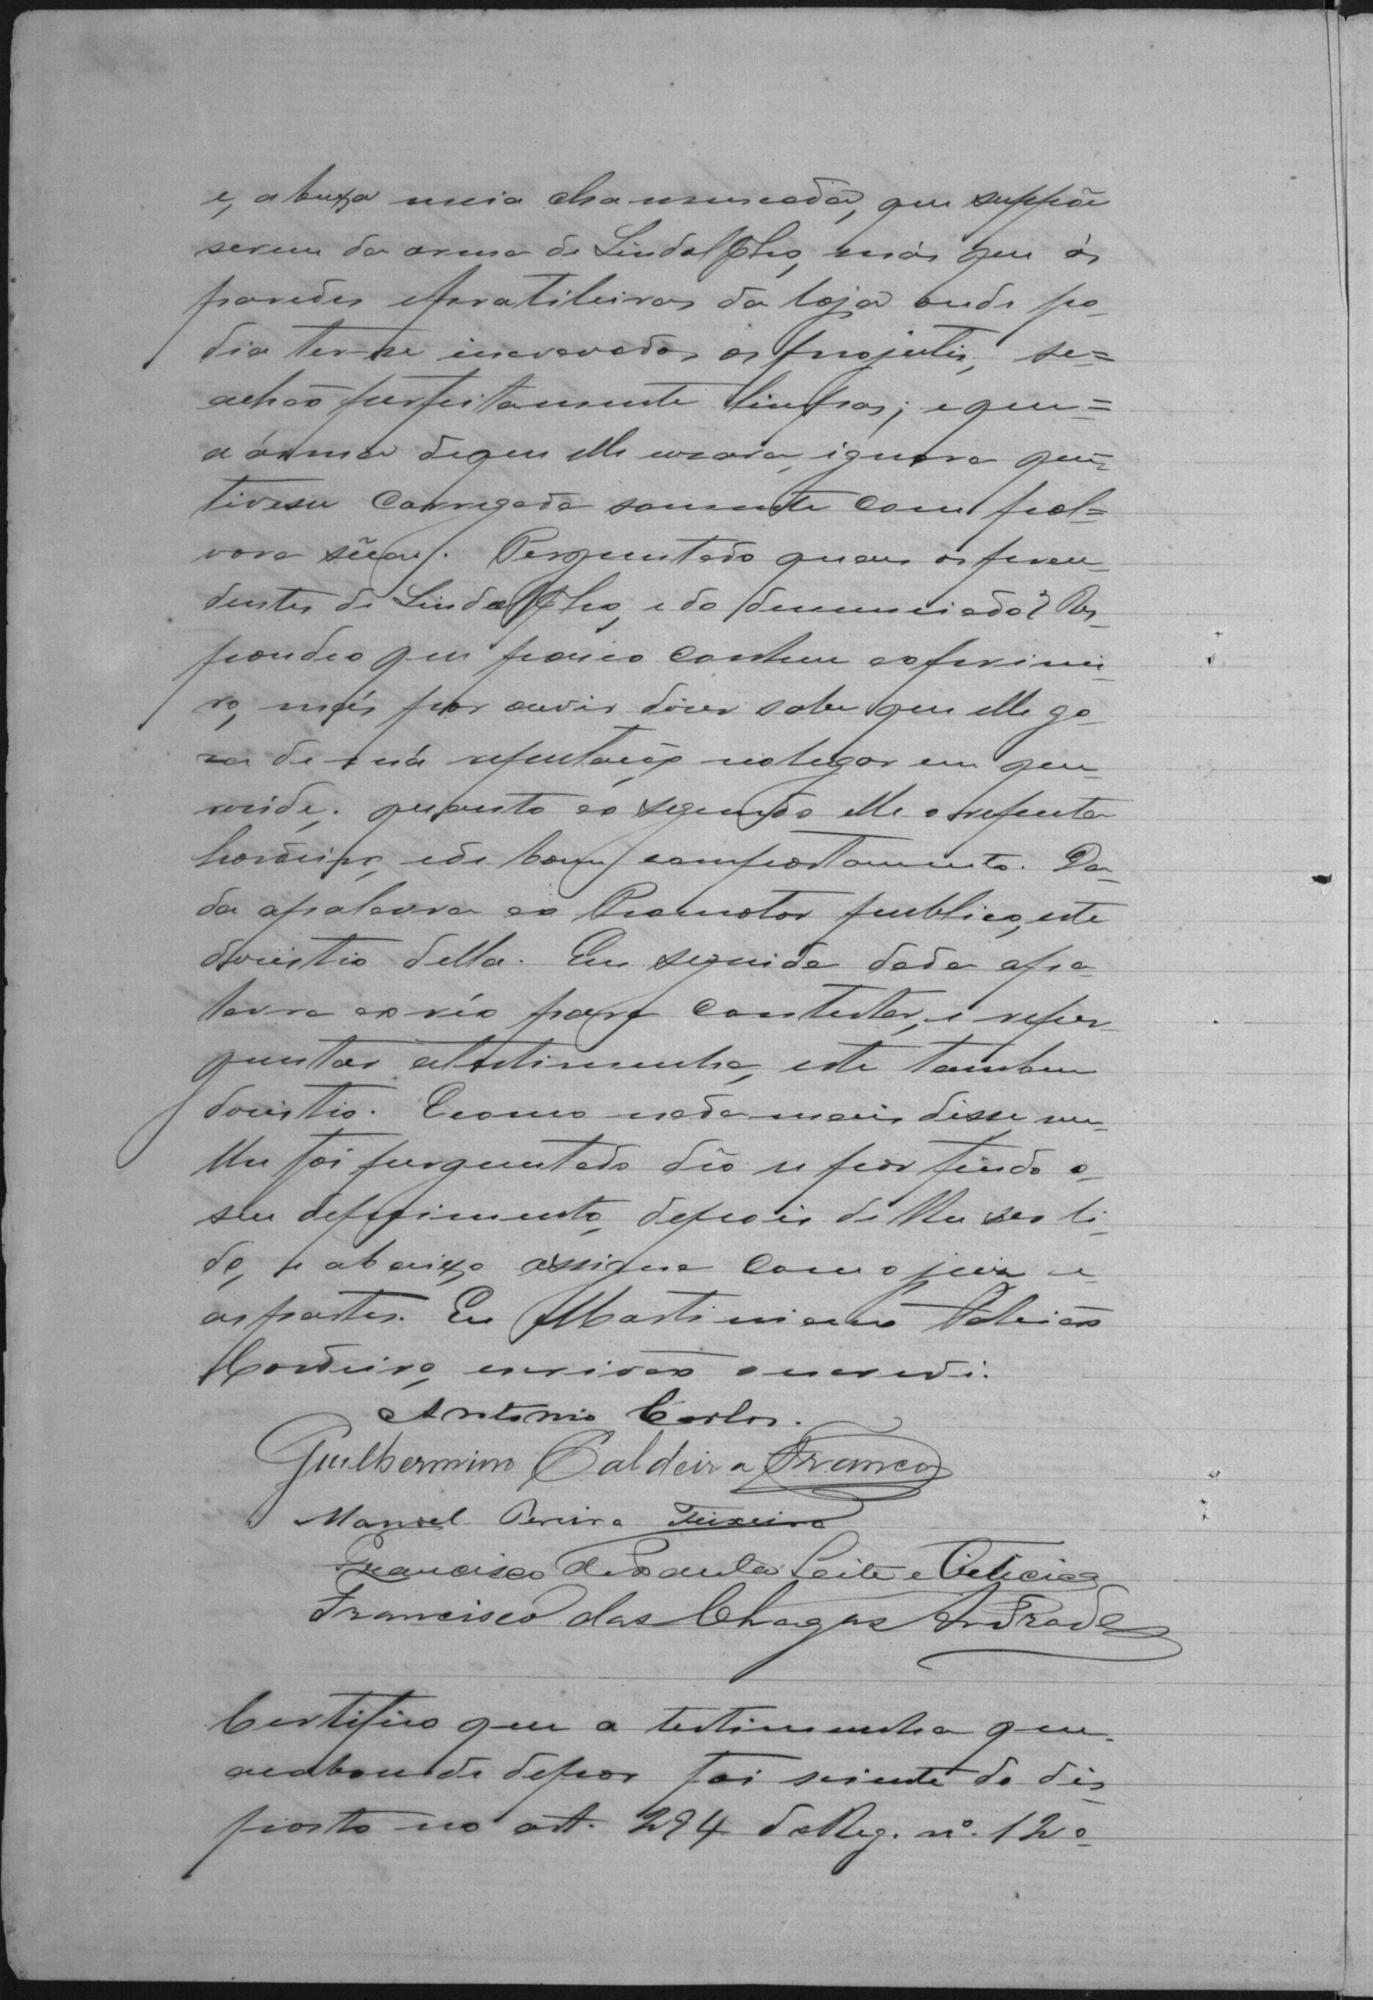 e, a buxa meia chamuscada, que suppõe
serem da arma de Lindolpho, más que ás
paredes e prateleiras da loja onde po-
dia ter-se incravados os projectis, se=
achão perfeitamente limpas; e que=
a árma de que elle uzava, ignora que
tivesse carregada somente com pol=
vora secca. Perguntado quaes os prece-
dentes de Lindolpho, e do denunciado? Res-
pondeo que pouco conhece ao primei-
ro, más por ouvir dizer sabe que elle go-
za de má reputação no lugar em que
reside; quanto ao segundo elle o reputa
hordeiro, e de bom comportamento. Da-
da a palavra ao Promotor publico, este
desistio della. Em seguida dada a pa-
lavra ao réo para contestar, e reper-
guntar a testimunha, este tambem
desistio. E como nada mais disse nem
lhe foi perguntado déo se por findo o
seu depoimento, depois de lhe ser li-
do, e abaixo assigna com o juiz e
as partes. Eu Martiniano
Cordeiro, escrivão o escrevi.
Antonio Carlos.
Guilhermino Caldeira Franco
Manoel Pereira Teixeira
Francisco de Paula Leite e
Francisco das Chagas Andrade
Certifico que a testimunha que
acabou de depor foi sciente do dis-
posto no art. 294 do Reg. nº. 120